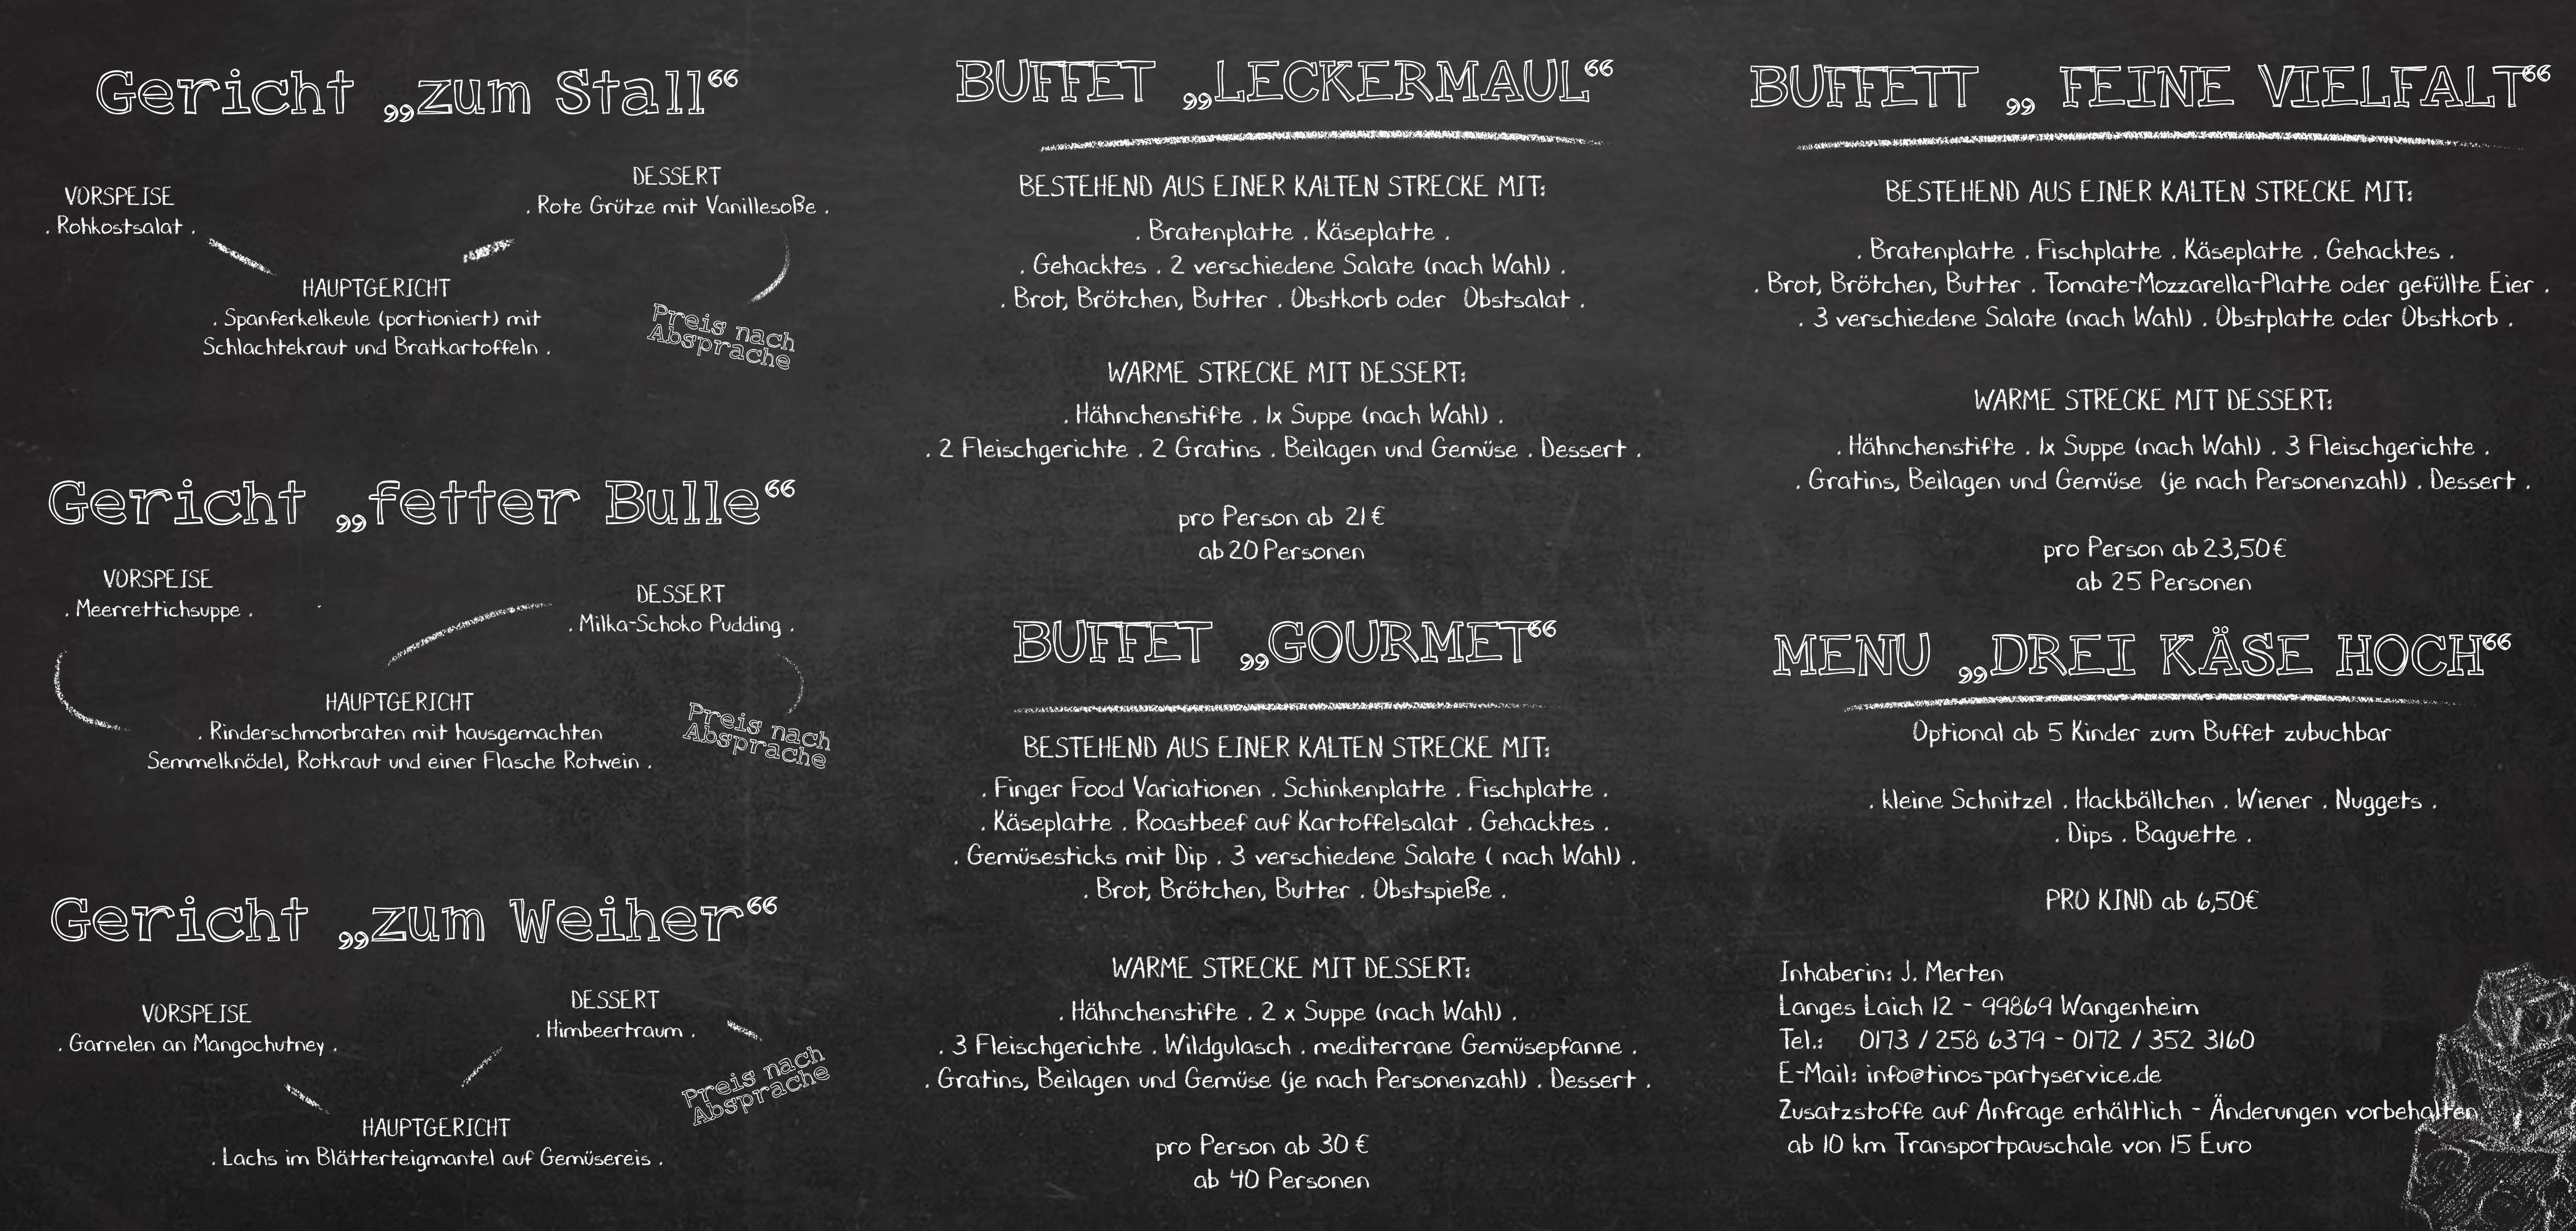 Gericht „zum Stall“
VORSPEISE
. Rohkostsalat .
DESSERT
. Rote Grütze mit Vanillesoße .
HAUPTGERICHT
. Spanferkelkeule (portioniert) mit
Schlachtekraut und Bratkartoffeln .
Preis nach
Absprache
Gericht „fetter Bulle“
VORSPEISE
. Meerrettichsuppe .
DESSERT
. Milka-Schoko Pudding .
HAUPTGERICHT
. Rinderschmorbraten mit hausgemachten
Semmelknödel, Rotkraut und einer Flasche Rotwein .
Preis nach
Absprache
Gericht „zum Weiher“
VORSPEISE
. Garnelen an Mangochutney .
DESSERT
. Himbeertraum .
HAUPTGERICHT
. Lachs im Blätterteigmantel auf Gemüsereis .
Preis nach
Absprache
BUFFET „LECKERMAUL“
BESTEHEND AUS EINER KALTEN STRECKE MIT:
. Bratenplatte . Käseplatte .
. Gehacktes . 2 verschiedene Salate (nach Wahl) .
. Brot, Brötchen, Butter . Obstkorb oder Obstsalat .
WARME STRECKE MIT DESSERT:
. Hähnchenstifte . 1x Suppe (nach Wahl) .
. 2 Fleischgerichte . 2 Gratins . Beilagen und Gemüse . Dessert .
pro Person ab 21 €
ab 20 Personen
BUFFET „GOURMET“
BESTEHEND AUS EINER KALTEN STRECKE MIT:
. Finger Food Variationen . Schinkenplatte . Fischplatte .
. Käseplatte . Roastbeef auf Kartoffelsalat . Gehacktes .
. Gemüsesticks mit Dip . 3 verschiedene Salate ( nach Wahl) .
. Brot, Brötchen, Butter . Obstspieße .
WARME STRECKE MIT DESSERT:
. Hähnchenstifte . 2 x Suppe (nach Wahl) .
. 3 Fleischgerichte . Wildgulasch . mediterrane Gemüsepfanne .
. Gratins, Beilagen und Gemüse (je nach Personenzahl) . Dessert .
pro Person ab 30 €
ab 40 Personen
BUFFETT „ FEINE VIELFALT“
BESTEHEND AUS EINER KALTEN STRECKE MIT:
. Bratenplatte . Fischplatte . Käseplatte . Gehacktes .
. Brot, Brötchen, Butter . Tomate-Mozzarella-Platte oder gefüllte Eier .
. 3 verschiedene Salate (nach Wahl) . Obstplatte oder Obstkorb .
WARME STRECKE MIT DESSERT:
. Hähnchenstifte . 1x Suppe (nach Wahl) . 3 Fleischgerichte .
. Gratins, Beilagen und Gemüse (je nach Personenzahl) . Dessert .
pro Person ab 23,50€
ab 25 Personen
MENU „DREI KÄSE HOCH“
Optional ab 5 Kinder zum Buffet zubuchbar
. kleine Schnitzel . Hackbällchen . Wiener . Nuggets .
. Dips . Baguette .
PRO KIND ab 6,50€
Inhaberin: J. Merten
Langes Laich 12 - 99869 Wangenheim
Tel.: 0173 / 258 6379 - 0172 / 352 3160
E-Mail: info@tinos-partyservice.de
Zusatzstoffe auf Anfrage erhältlich - Änderungen vorbehalten
ab 10 km Transportpauschale von 15 Euro